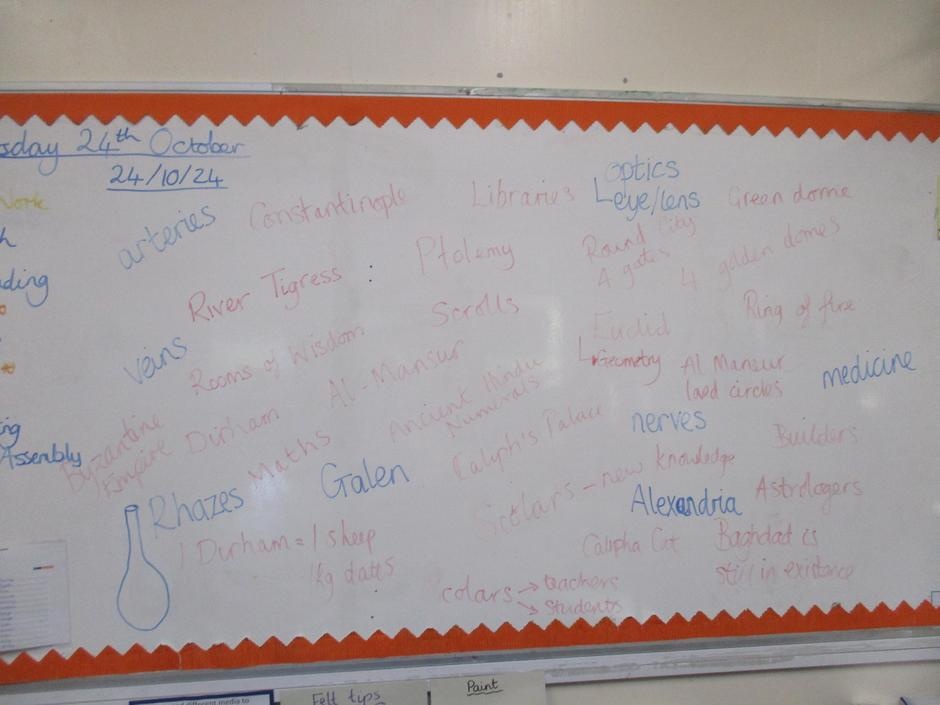 sday 24th October
24/10/24
Work
ding
Assembly
arteries
Constantinople
Libraries
optics
eye/lens
Green dome
River Tigress
Ptolemy
Round City
4 gates
4 golden domes
veins
Rooms of Wisdom
Scrolls
Euclid
Geometry
Ring of fire
Al Mansur
laed circles
medicine
Byzantine
Empire
Dirham
Al-Mansur
Ancient Hindu
Numerals
Maths
Caliph's Palace
nerves
Builders
Rhazes
Galen
- new knowledge
Alexandria
Astrologers
1 Dirham = 1 sheep
1kg dates
Baghdad is
still in existance
colars → teachers
→ students
Felt tips
Paint